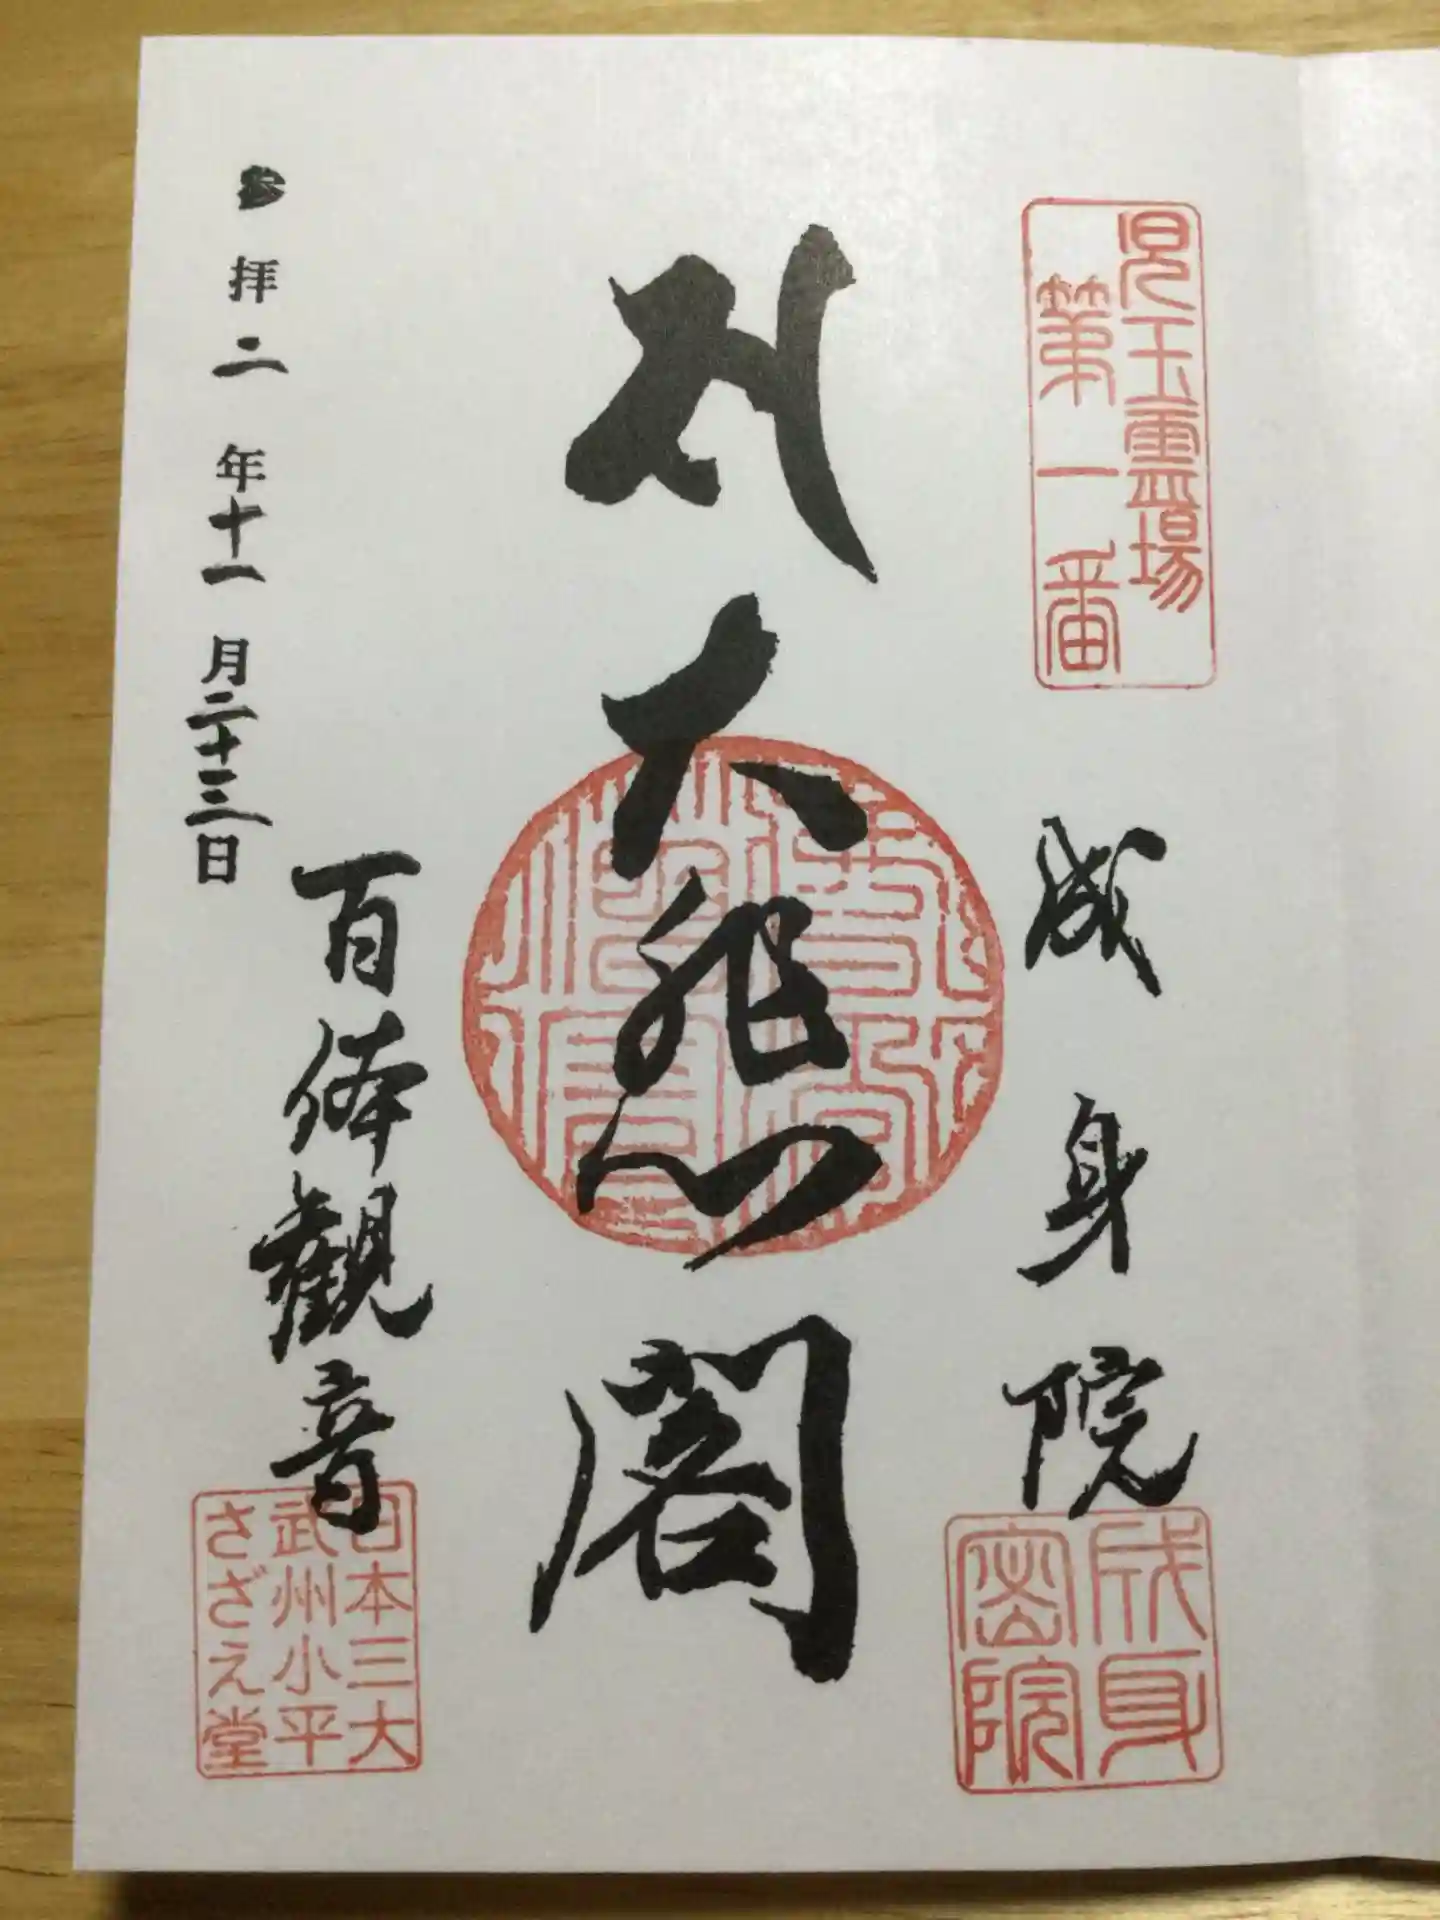 児玉霊場
第一番
成身院
成身
密院
大悲閣
百体觀音
日本三大
武州小平
さざえ堂
参拝二年十一月二十三日